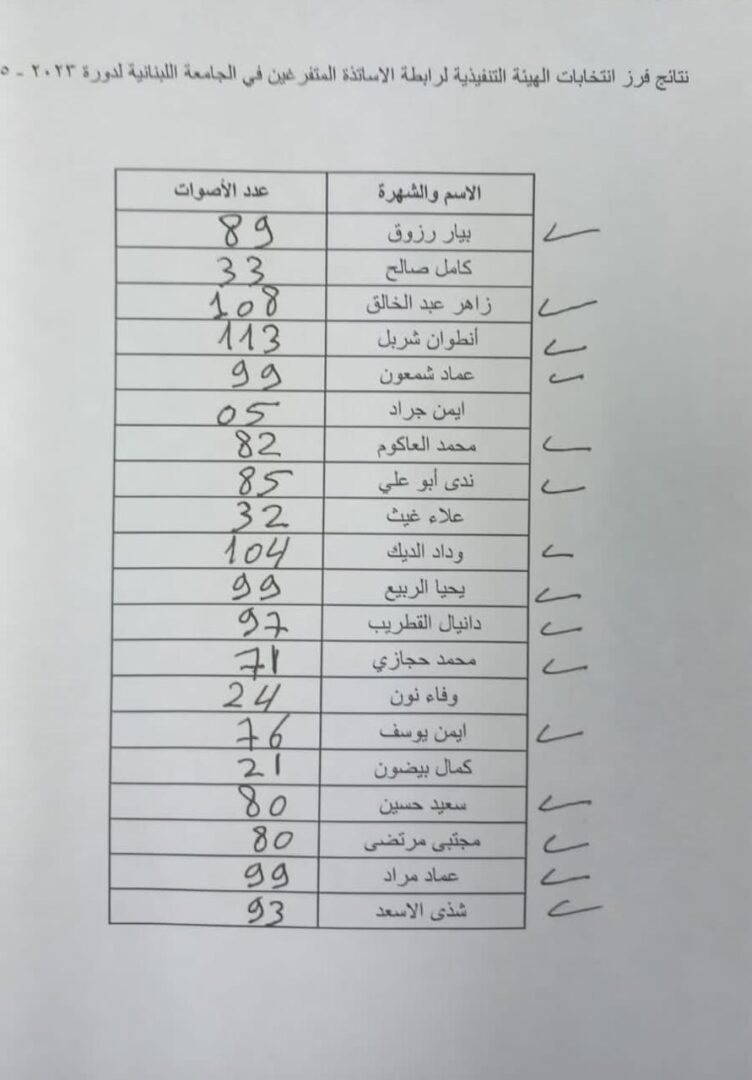 نتائج فرز انتخابات الهيئة التنفيذية لرابطة الاساتذة المتفرغين في الجامعة اللبنانية لدورة ٢٠٢٣ - ٥
الاسم والشهرة عدد الأصوات
بيار رزوق 89
كامل صالح 33
زاهر عبد الخالق 108
أنطوان شربل 113
عماد شمعون 99
ايمن جراد 05
محمد العاكوم 82
ندى أبو علي 85
علاء غيث 32
وداد الديك 104
يحيا الربيع 99
دانيال القطريب 97
محمد حجازي 71
وفاء نون 24
ايمن يوسف 76
كمال بيضون 21
سعيد حسين 80
مجتبى مرتضى 80
عماد مراد 99
شذى الاسعد 93